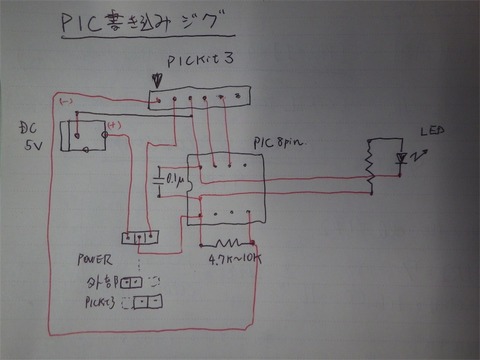 PIC書き込みジグ
PICKit3
(-)
DC
5V
(+)
PIC 8pin
LED
0.1μ
4.7K~10K
POWER
外部
PICKit3